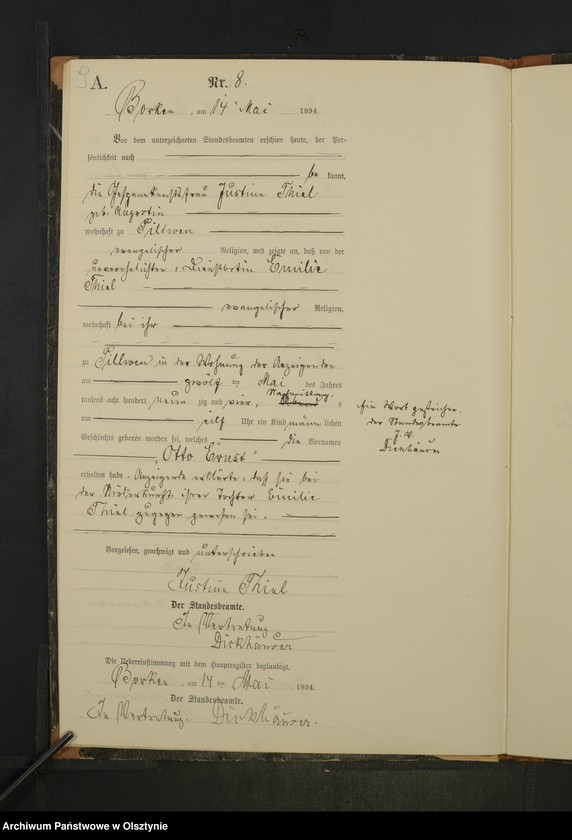 9
A. Nr. 8.
Borken, am 14ten Mai 1894.
Vor dem unterzeichneten Standesbeamten erschien heute, der Per-
sönlichkeit nach
be kannt,
die Justine Thiel
geb. Augustin
wohnhaft zu Pillwen
evangelischer Religion, und zeigte an, daß von der
unverehelichten Dienstbotin Emilie
Thiel
evangelischer Religion,
wohnhaft bei ihr
zu Pillwen in der Wohnung der Anzeigenden
am zwölf ten Mai des Jahres
tausend acht hundert neun zig und vier, Nachmittags
um elf Uhr ein Kind männlichen
Geschlechts geboren worden sei, welches die Vornamen
"Otto Ernst"
erhalten habe. Anzeigende erklärte, daß sie bei
der Niederkunft ihrer Tochter Emilie
Thiel zugegen gewesen sei.
Ein Wort gestrichen.
der Standesbeamte
J. V.
Dickhäuser
Vorgelesen, genehmigt und unterschrieben
Justine Thiel
Der Standesbeamte.
In Vertretung
Dickhäuser
Die Uebereinstimmung mit dem Hauptregister beglaubigt.
Borken, am 14ten Mai 1894.
Der Standesbeamte.
In Vertretung. Dickhäuser.
Archiwum Państwowe w Olsztynie